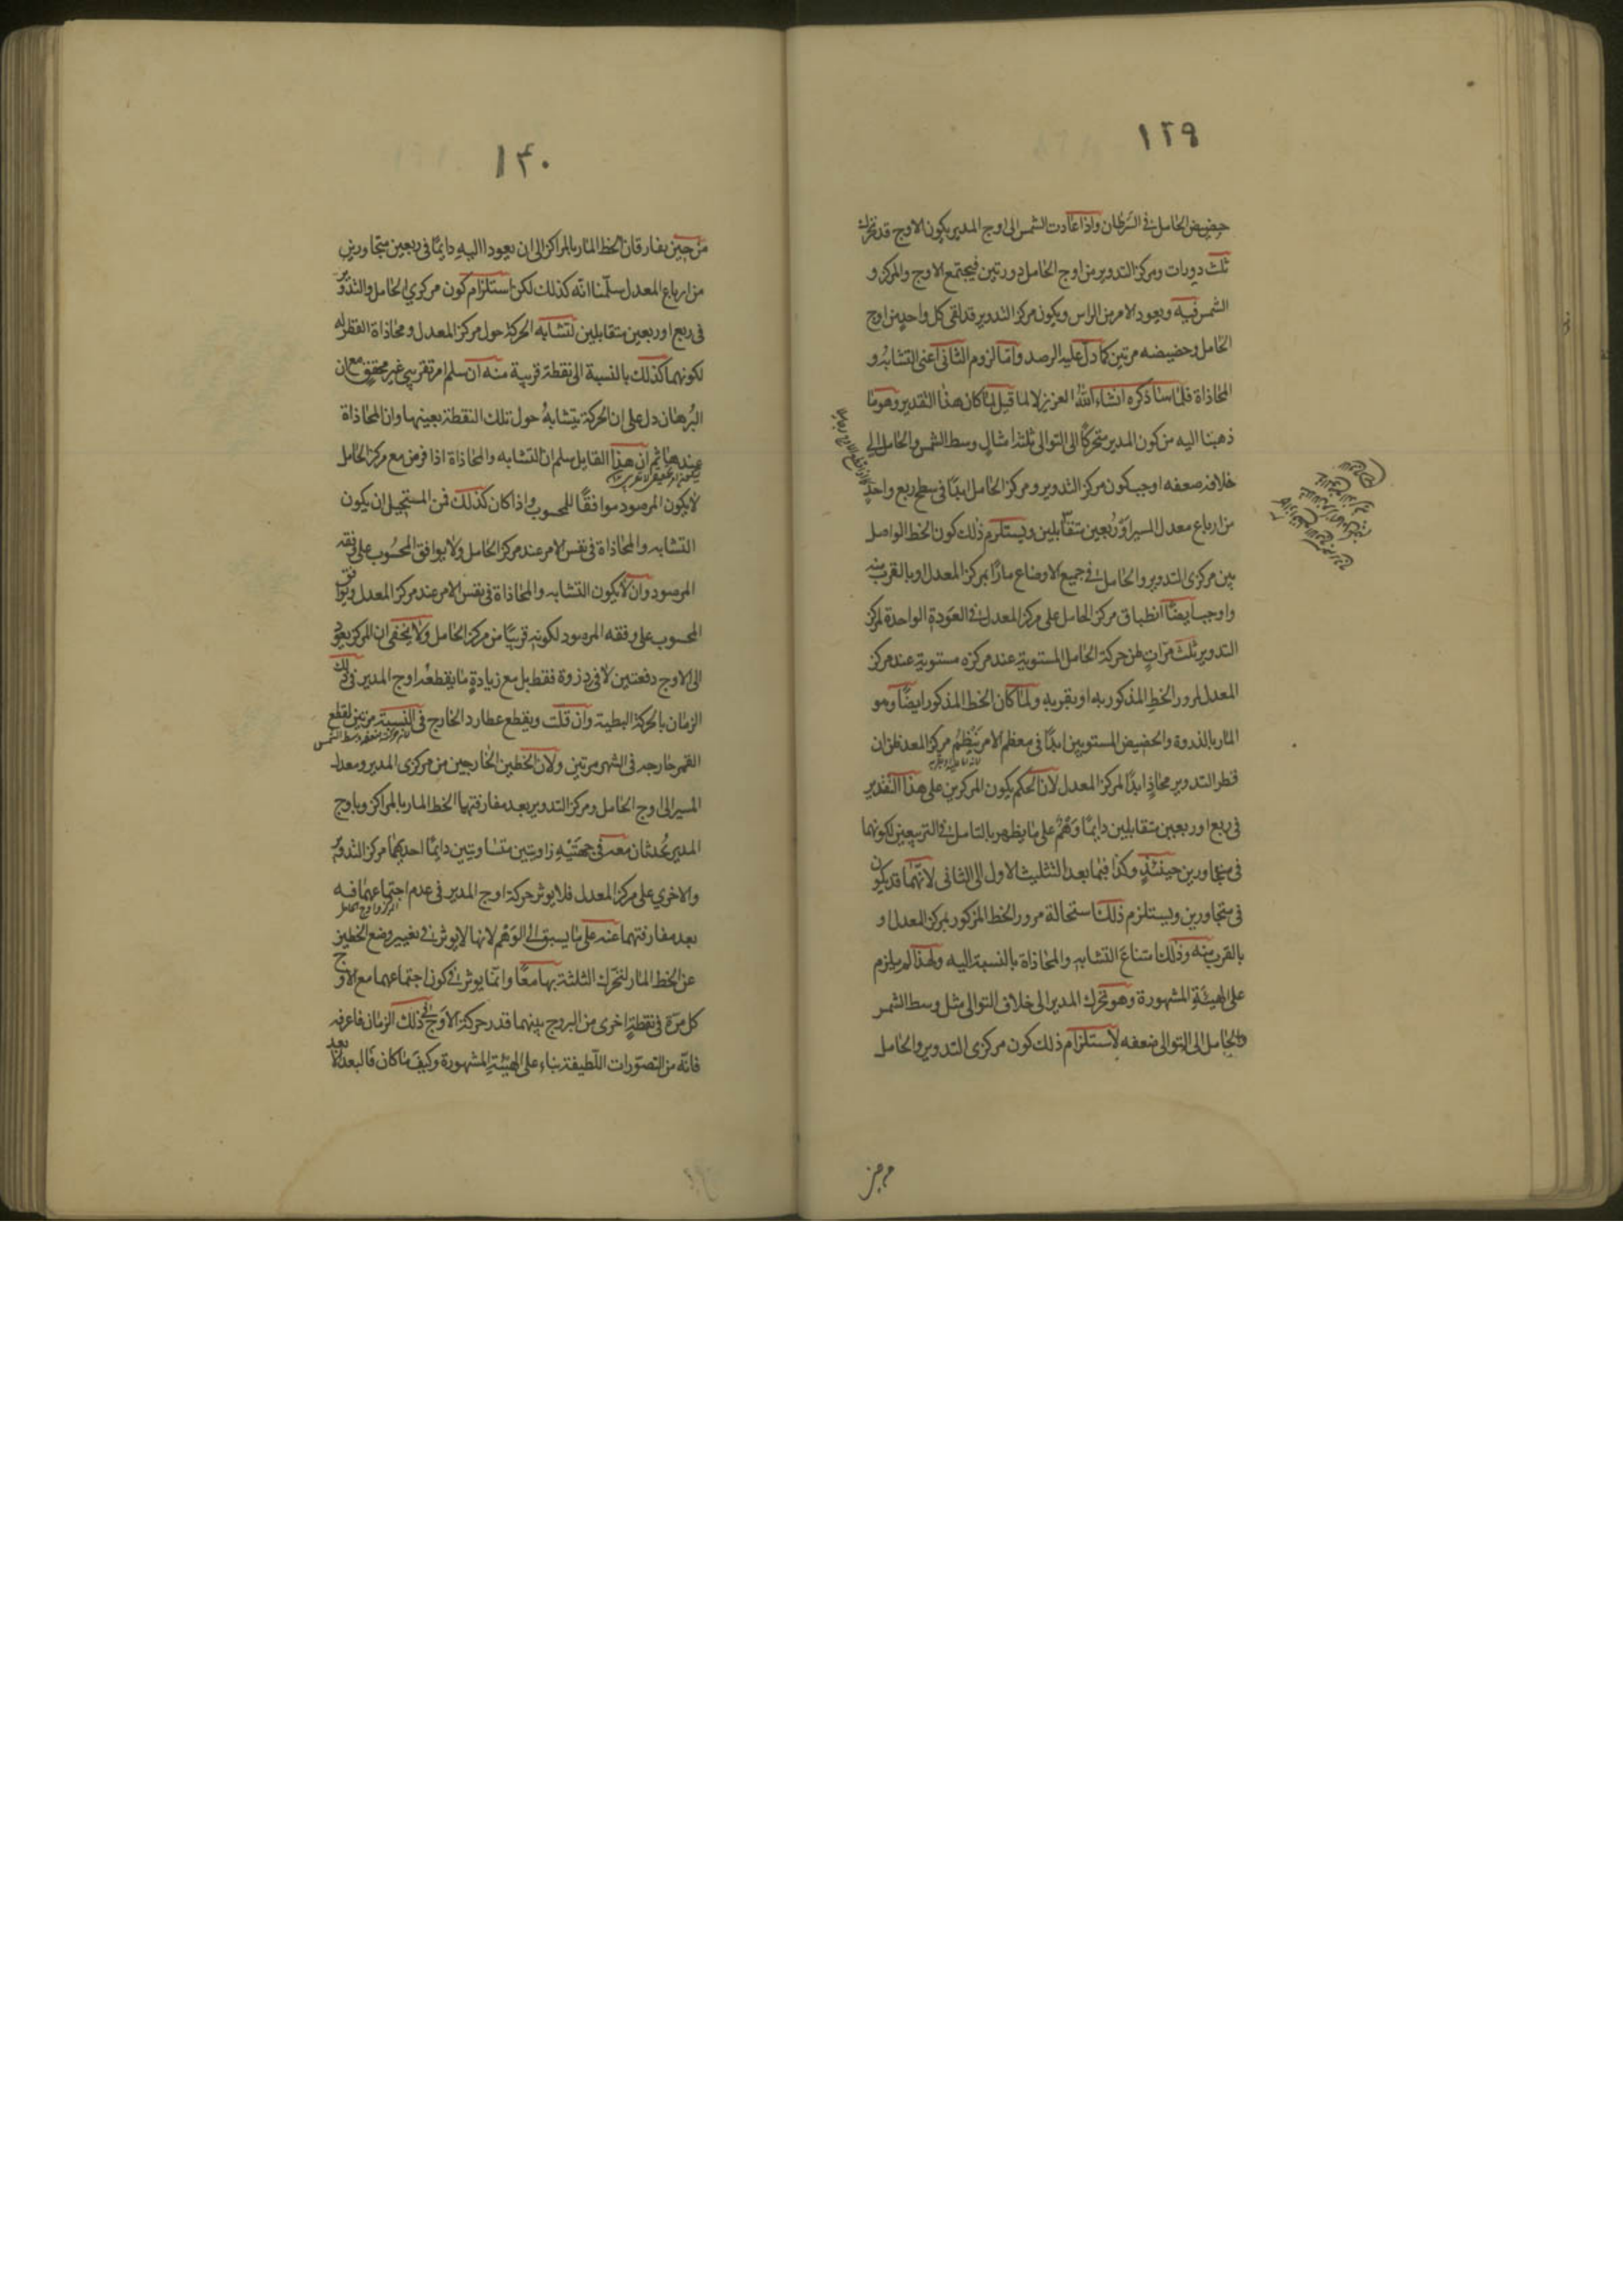 ١٢٩
حضيض الحامل في السرطان واذا عادت الشمس الى اوج المدير يكون الاوج قد تحرك
ثلث دورات ومركز التدوير من اوج الحامل دورتين فيجتمع الاوج والمركز و
الشمس فيه ويعود الامر من الراس ويكون مركز التدوير قد لقى كل واحد من اوج
الحامل وحضيضه مرتين كما دل عليه الرصد واما لزوم الثاني اعني التشابه و
المحاذاة فلما سنذكره انشاء الله العزيز لا لما قيل لما كان هذا التقدير وهو ما
ذهبنا اليه من كون المدير متحركًا الى التوالي ثلثة امثال وسط الشمس والحامل الى
خلافه ضعفه اوجب كون مركز التدوير ومركز الحامل ابدًا في سطح ربع واحد
من ارباع معدل المسير او ربعين متقابلين ويستلزم ذلك كون الخط الواصل
بين مركزي التدوير والحامل في جميع الاوضاع مارًا بمركز المعدل او بالقرب منه
واوجب ايضًا انطباق مركز الحامل على مركز المعدل في العودة الواحدة لمركز
التدوير ثلث مرات ظن حركة الحامل المستوية عند مركزه مستوية عند مركز
المعدل لمرور الخط المذكور به او بقربه ولما كان الخط المذكور ايضًا وهو
المار بالذروة والحضيض المستويين ابدًا في معظم الامر ينظم مركز المعدل ظن ان
قطر التدوير محاذٍ ابدًا لمركز المعدل لان الحكم بكون المركزين على هذا التقدير
في ربع او ربعين متقابلين دايمًا وهم على ما يظهر بالتامل في التربيعين لكونهما
في متجاورين حينئذٍ وكذا فيما بعد التثليث الاول الى الثاني لانهما قد يكون
في متجاورين ويستلزم ذلك استحالة مرور الخط المذكور بمركز المعدل او
بالقرب منه وذلك امتناع التشابه والمحاذاة بالنسبة اليه ولهذا لم يلزم
على الهيئة المشهورة وهو تحرك المدير الى خلاف التوالي مثل وسط الشمس
والحامل الى التوالي ضعفه لاستلزام ذلك كون مركزي التدوير والحامل
من حين
١٣٠
من حين يفارقان الخط المار بالمراكز الى ان يعودا اليه دايمًا في ربعين متجاورين
من ارباع المعدل سلمنا انه كذلك لكن استلزام كون مركزي الحامل والتدوير
في ربع او ربعين متقابلين لتشابه الحركة حول مركز المعدل ومحاذاة القطر له
لكونهما كذلك بالنسبة الى نقطة قريبة منه ان سلم امر تقريبي غير محقق مع ان
البرهان دل على ان الحركة يتشابه حول تلك النقطة بعينها وان المحاذاة
عندها ثم ان هذا القايل سلم ان التشابه والمحاذاة اذا فرض مع مركز الحامل
لا يكون المرصود موافقًا للمحسوب واذا كان كذلك فمن المستحيل ان يكون
التشابه والمحاذاة في نفس الامر عند مركز الحامل ولا يوافق المحسوب على وفقه
المرصود وان لا يكون التشابه والمحاذاة في نفس الامر عند مركز المعدل ويوافق
المحسوب على وفقه المرصود لكونه قريبًا من مركز الحامل ولا يخفى ان المركز يعود
الى الاوج دفعتين لا في دورة فقط بل مع زيادة ما يقطعه اوج المدير في ذلك
الزمان بالحركة البطيئة وان قلت ويقطع عطارد الخارج في السنة مرتين لقطع
القمر خارجه في الشهر مرتين ولان الخطين الخارجين من مركزي المدير ومعدل
المسير الى اوج الحامل ومركز التدوير بعد مفارقتهما الخط المار بالمراكز وباوج
المدير يحدثان معه في جهتيه زاويتين متساويتين دايمًا احديهما مركز التدوير
والاخرى على مركز المعدل فلا يوثر حركة اوج المدير في عدم اجتماعهما فيه
بعد مفارقتهما عنه على ما يسبق الى الوهم لانها لا يوثر في تغيير وضع الخطين
عن الخط المار لتحرك الثلثة بها معًا وانما يوثر في كون اجتماعهما مع الاوج
كل مرة في نقطة اخرى من البروج بينهما قدر حركة الاوج في ذلك الزمان فاعرفه
فانه من التصورات اللطيفة بناء على الهيئة المشهورة وكيف ما كان فالبعد الابعد